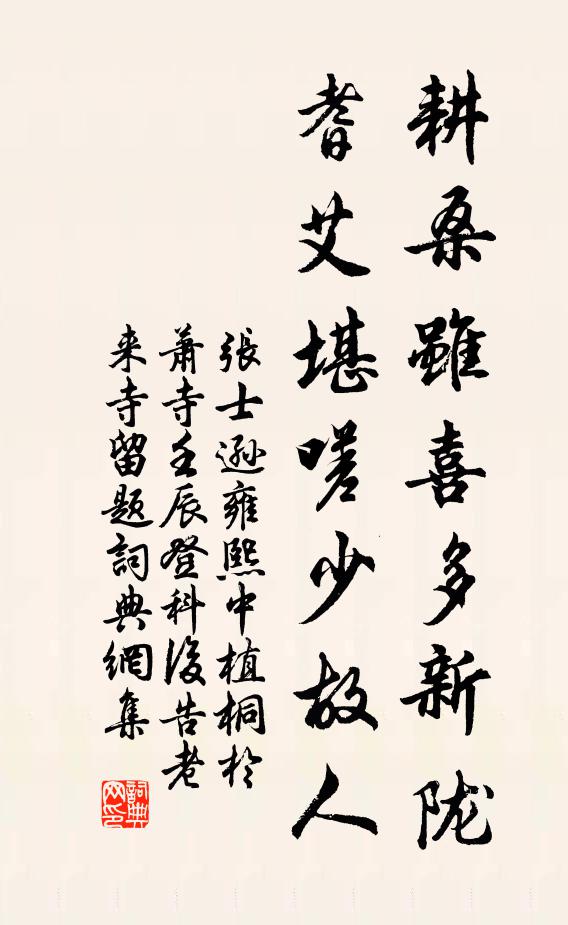 耕桑雖喜多新陇
耆艾堪嗟少故人
張士遜雍熙中植桐於
蕭寺壬辰登科後告老
来寺留题詞典網集
詞典网印